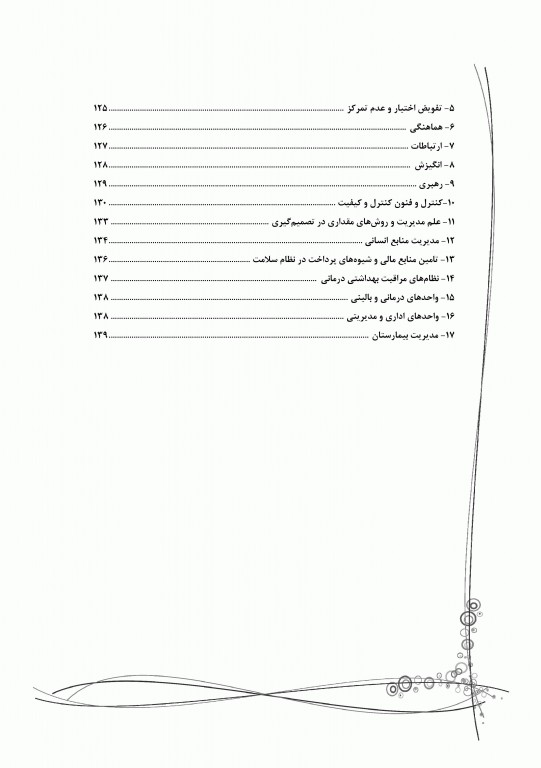 ۵- تفویض اختیار و عدم تمرکز ........ ۱۲۵
۶- هماهنگی ........ ۱۲۶
۷- ارتباطات ........ ۱۲۷
۸- انگیزش ........ ۱۲۸
۹- رهبری ........ ۱۲۹
۱۰-کنترل و فنون کنترل و کیفیت ........ ۱۳۰
۱۱- علم مدیریت و روش‌های مقداری در تصمیم‌گیری ........ ۱۳۳
۱۲- مدیریت منابع انسانی ........ ۱۳۴
۱۳- تامین منابع مالی و شیوه‌های پرداخت در نظام سلامت ........ ۱۳۶
۱۴- نظام‌های مراقبت بهداشتی درمانی ........ ۱۳۷
۱۵- واحدهای درمانی و بالینی ........ ۱۳۸
۱۶- واحدهای اداری و مدیریتی ........ ۱۳۸
۱۷- مدیریت بیمارستان ........ ۱۳۹